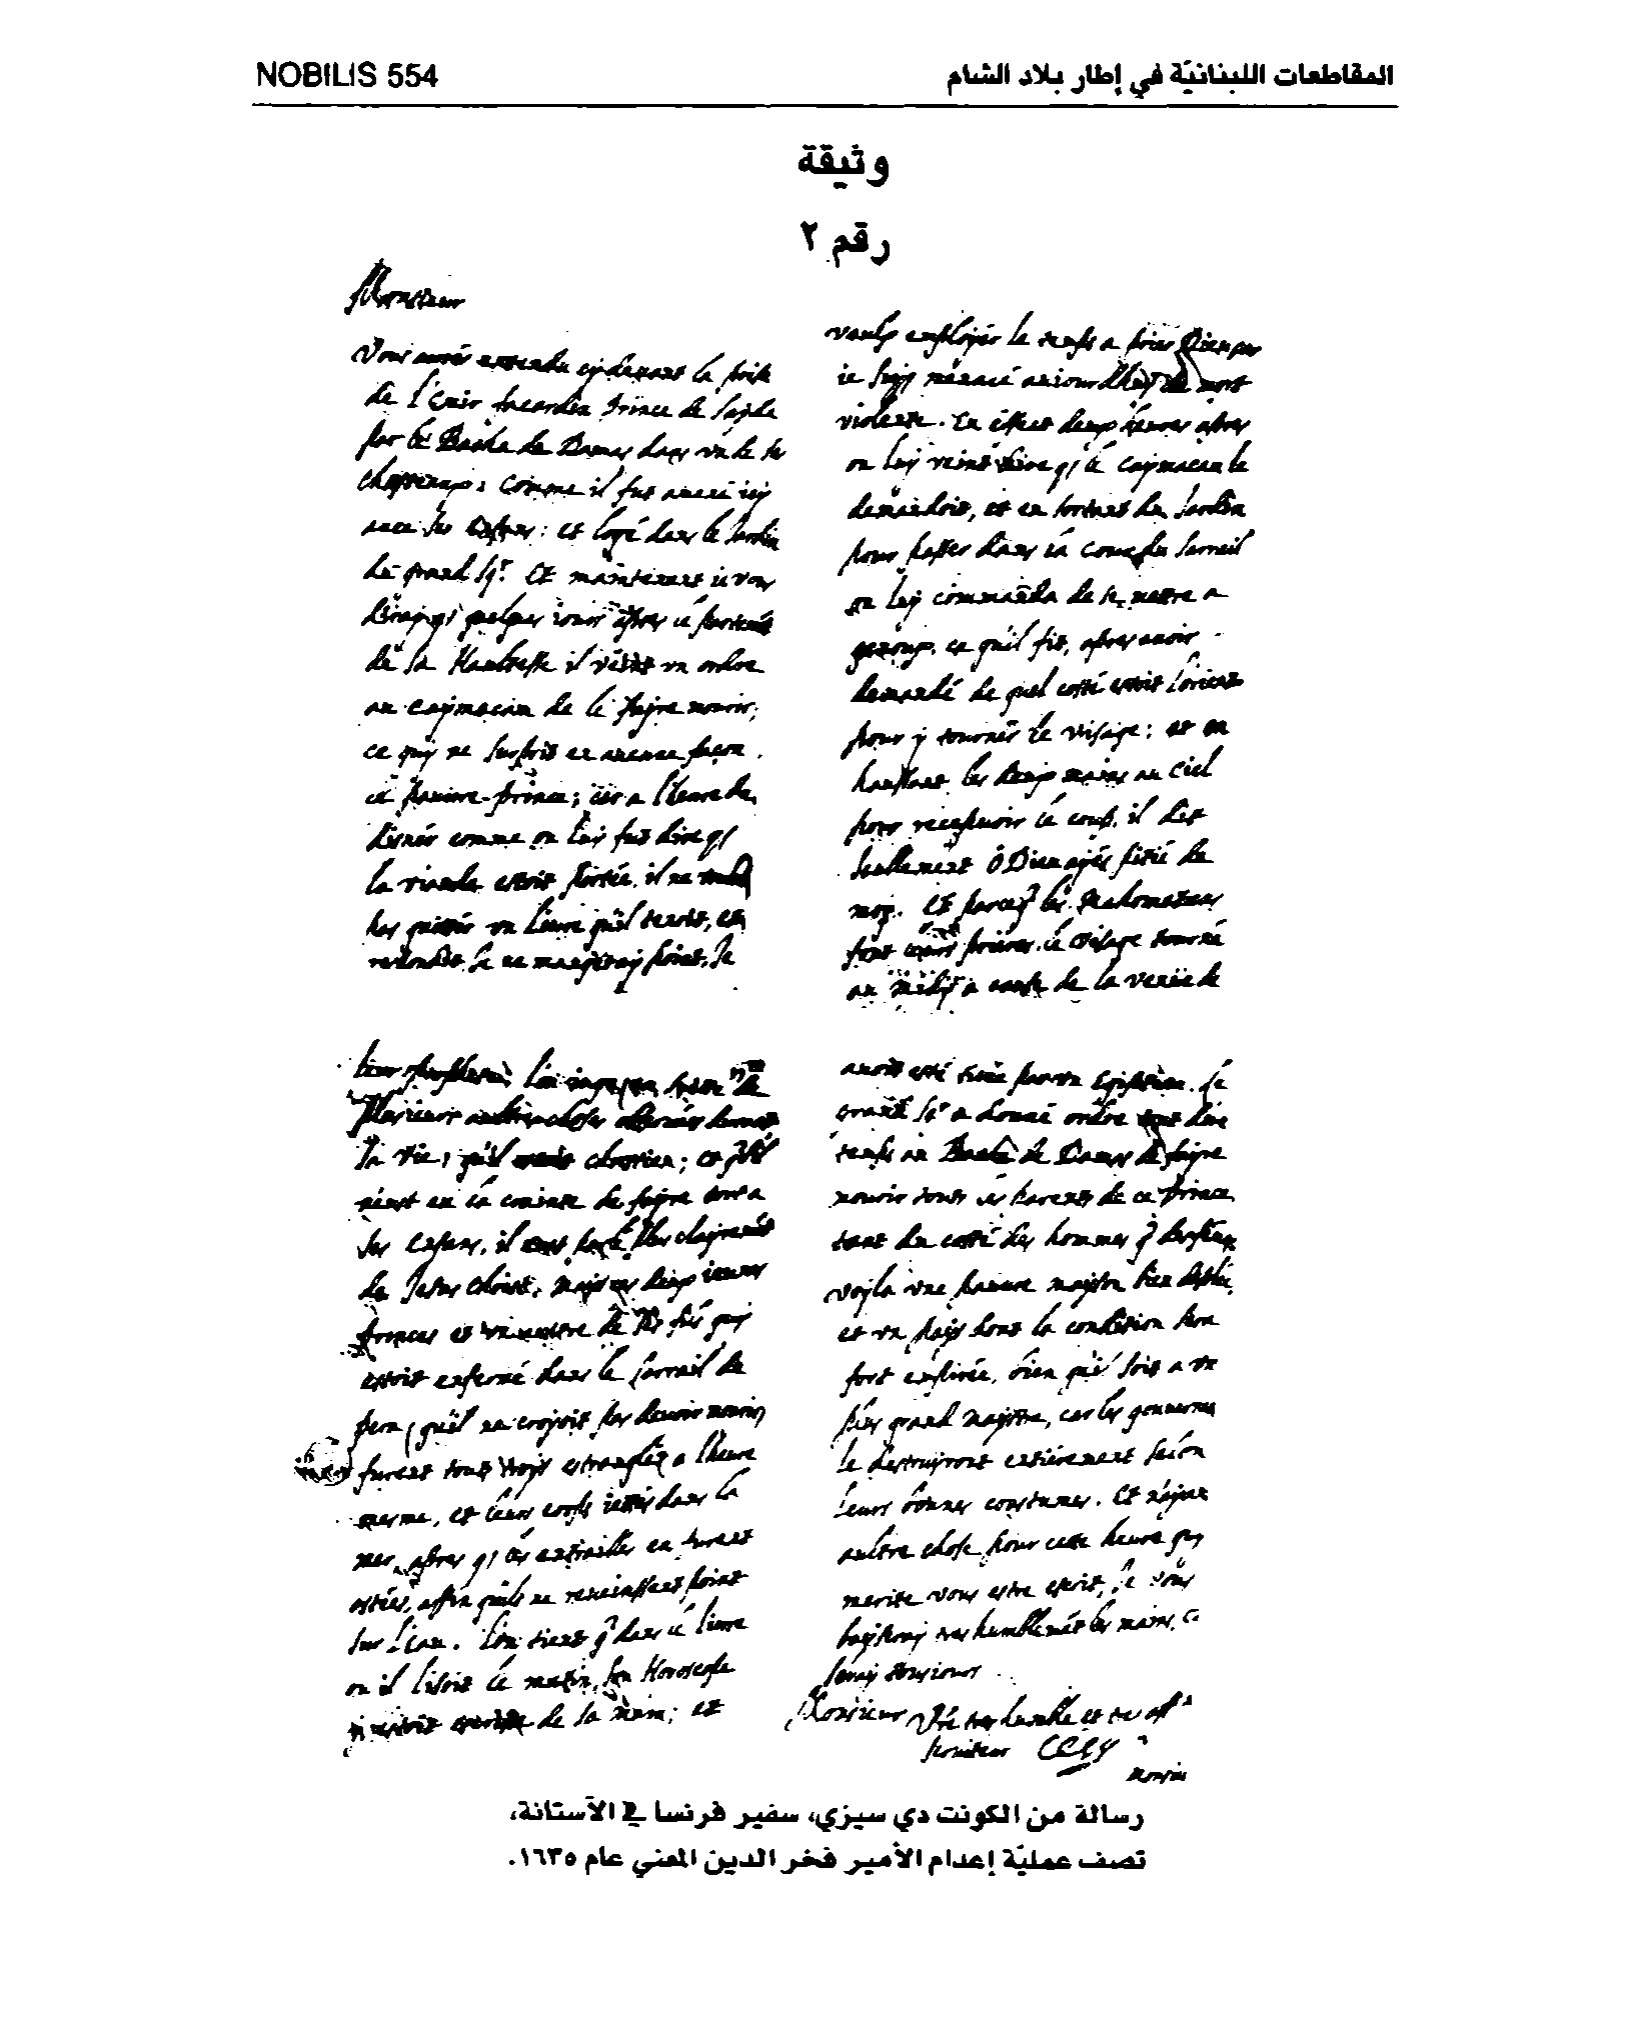 NOBILIS 554
المقاطعات اللبنانيّة في إطار بلاد الشام
وثيقة
رقم ٢
Monsieur
Vous avés entendu cy devant la prise
de l'Emir facardin Prince de Sayde
par le Bacha de Damas dans un de ses
chasteaux: comme il fut amené icy
avec ses enfans: et logé dans le Jardin
du grand Sgr. Et maintenant ie vous
diray q; quelques iours apres le partemẽt
de sa Haultesse il veint un ordre
au Caymacan de le fayre mourir;
ce quy ne surprit en aucune façon
ce pauvre prince; car a l'heure du
disner comme on luy fut dire q;
la viande estoit portée, il ne voulut
pas quitter un livre qu'il tenoit, et
respondit Je ne mangeray point, Je
veulx employer le temps a prier Dieu car
ie suis menacé auiourdhuy de mort
violente. En effect deux heures apres
on luy veint dire q; le Caymacan le
demandoit, et en sortant du Jardin
pour passer dans la cour du Serrail
on luy commanda de se mettre a
genoux. ce qu'il fit, apres avoir
demandé de quel costé estoit l'orient
pour y tourner le visage; et en
haussant les deux mains au Ciel
pour recepvoir le coup, il dit
seullement ô Dieu ayés pitié de
moy. Et parceq̃ les Mahometans
font leurs prieres le visage tourné
au midy a cause de la
leur l'on
Plusieurs aultres choses durant
sa vie, qu'il chrestien; et q̃ s'il
n'eust eu la crainte de fayre tort a
ses enfans, il eust parlé plus clayremẽt
de Jesus Christ. Mais ces deux ieunes
princes et un aultre de ses fils quy
estoit enfermé dans le serrail de
Pera, qu'il ne croyoit pas devoir mourir
furent tous trois estranglez a l'heure
mesme, et leurs corps iettés dans la
mer, apres q; les entrailles en furent
ostées, affin qu'ils ne reveinssent point
sur l'eau. L'on tient q̃ dans le livre
ou il lisoit le matin, son Horoscope
y estoit de sa main; et
avoit esté tirée par un Egiptien. Le
grand Sgr a donné ordre
temps au Bacha de Damas de fayre
mourir tous les parents de ce prince
tant du costé des hommes q̃ des
voyla une pauvre mayson bien
et un pays dont la condition sera
fort empirée, bien qu'il soit a un
plus grand maystre, car les
le destruyront entierement selon
leurs bonnes coustumes. Et n'ayant
aultre chose pour cette heure quy
merite vous estre escrit, Je vous
bayseray tres humblemẽt les mains, et
seray tousiours
Monsieur Vre tres humble et tres aff
serviteur CESY
Monsieur
رسالة من الكونت دي سيزي، سفير فرنسا في الآستانة،
تصف عمليّة إعدام الأمير فخر الدين المعني عام ١٦٣٥.